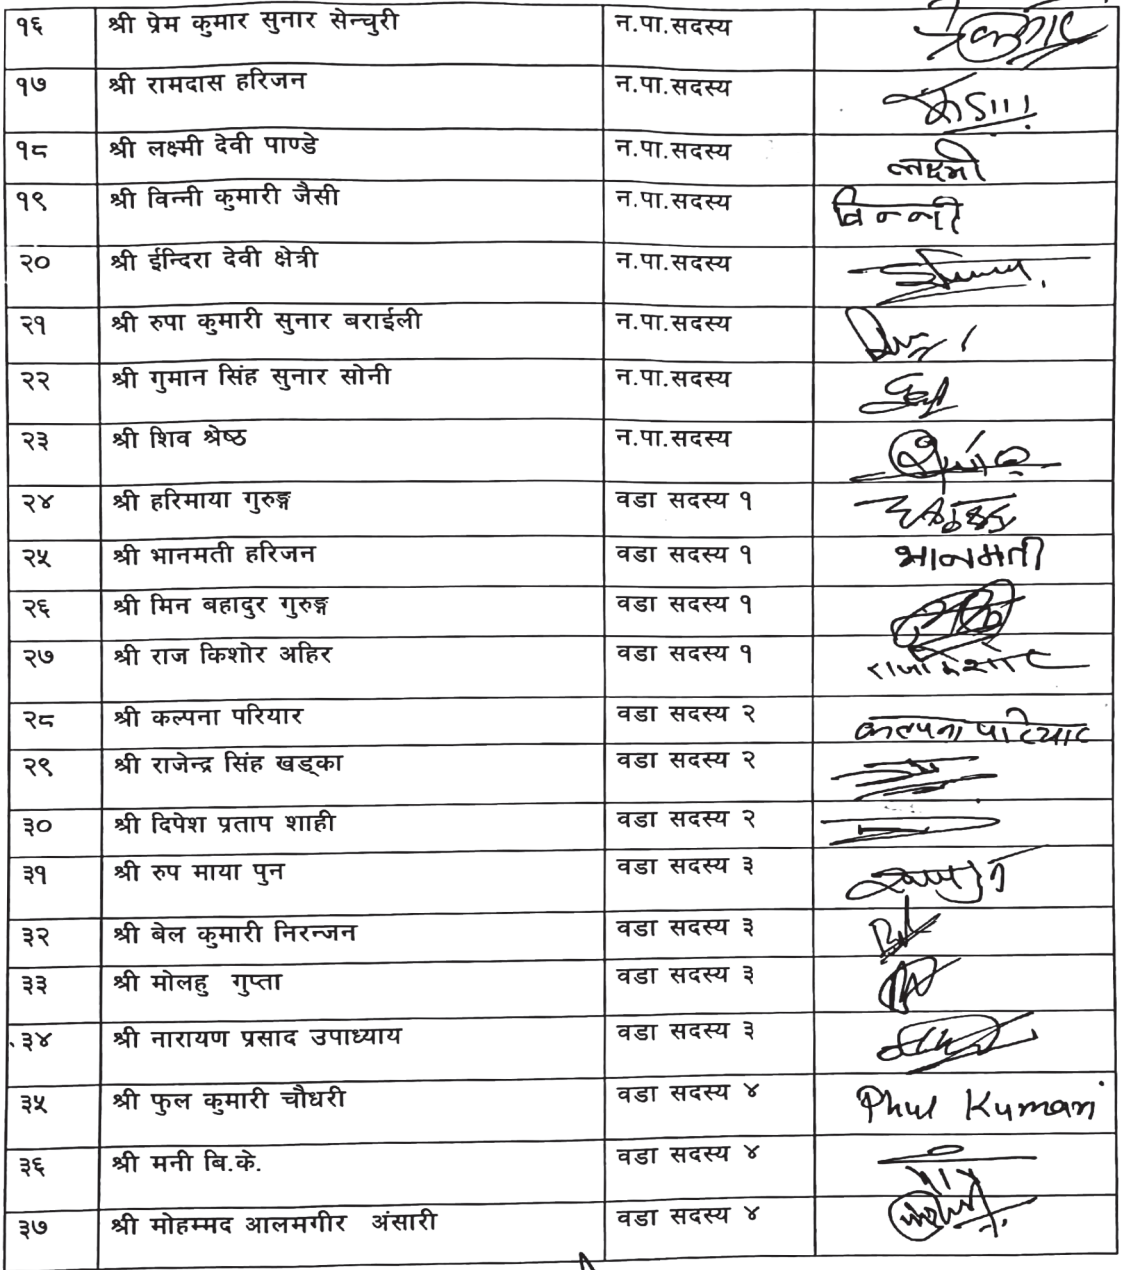 १६ श्री प्रेम कुमार सुनार सेन्चुरी न.पा.सदस्य
१७ श्री रामदास हरिजन न.पा.सदस्य
१८ श्री लक्ष्मी देवी पाण्डे न.पा.सदस्य लक्ष्मी
१९ श्री विन्नी कुमारी जैसी न.पा.सदस्य विन्नी
२० श्री ईन्दिरा देवी क्षेत्री न.पा.सदस्य
२१ श्री रुपा कुमारी सुनार बराईली न.पा.सदस्य
२२ श्री गुमान सिंह सुनार सोनी न.पा.सदस्य
२३ श्री शिव श्रेष्ठ न.पा.सदस्य
२४ श्री हरिमाया गुरुङ्ग वडा सदस्य १
२५ श्री भानमती हरिजन वडा सदस्य १ भानमती
२६ श्री मिन बहादुर गुरुङ्ग वडा सदस्य १
२७ श्री राज किशोर अहिर वडा सदस्य १ राजकिशोर
२८ श्री कल्पना परियार वडा सदस्य २ कल्पना परियार
२९ श्री राजेन्द्र सिंह खड्का वडा सदस्य २
३० श्री दिपेश प्रताप शाही वडा सदस्य २
३१ श्री रुप माया पुन वडा सदस्य ३
३२ श्री बेल कुमारी निरन्जन वडा सदस्य ३
३३ श्री मोलहु गुप्ता वडा सदस्य ३
३४ श्री नारायण प्रसाद उपाध्याय वडा सदस्य ३
३५ श्री फुल कुमारी चौधरी वडा सदस्य ४ Phul Kumari
३६ श्री मनी बि.के. वडा सदस्य ४
३७ श्री मोहम्मद आलमगीर अंसारी वडा सदस्य ४